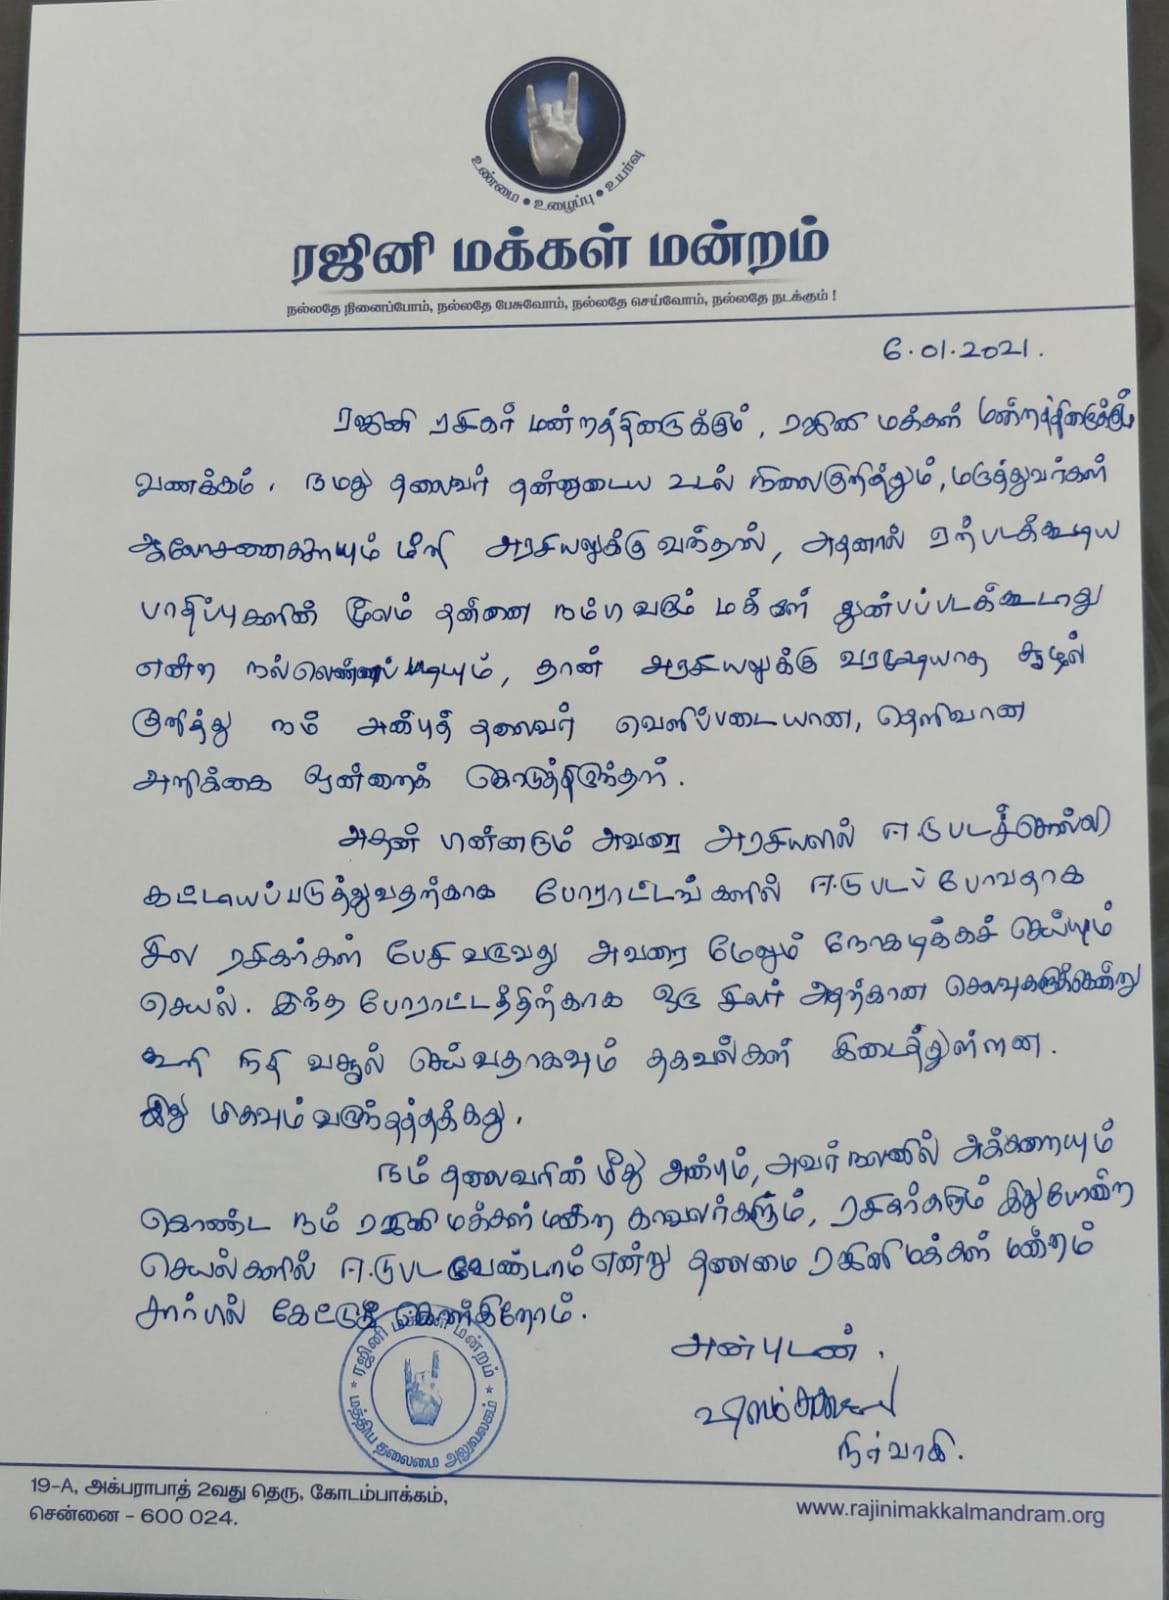 உண்மை • உழைப்பு • உயர்வு
ரஜினி மக்கள் மன்றம்
நல்லதே நினைப்போம், நல்லதே பேசுவோம், நல்லதே செய்வோம், நல்லதே நடக்கும் !
6.01.2021.
ரஜினி ரசிகர் மன்றத்தினருக்கும், ரஜினி மக்கள் மன்றத்தினருக்கும்
வணக்கம். நமது தலைவர் தன்னுடைய உடல் நிலைகுறித்தும், மருத்துவர்கள்
ஆலோசணைகளையும் மீறி அரசியலுக்கு வந்தால், அதனால் ஏற்படக்கூடிய
பாதிப்புகளின் மூலம் தன்னை நம்பி வரும் மக்கள் துன்பப்படக்கூடாது
என்ற நல்லெண்ணப்படியும், தான் அரசியலுக்கு வரமுடியாத சூழல்
குறித்து நம் அன்புத் தலைவர் வெளிப்படையான, தெளிவான
அறிக்கை ஒன்றைக் கொடுத்திருந்தார்.
அதன் பின்னரும் அவரை அரசியலில் ஈடுபடச்சொல்லி
கட்டாயப்படுத்துவதற்காக போராட்டங்களில் ஈடுபடப் போவதாக
சில ரசிகர்கள் பேசி வருவது அவரை மேலும் நோகடிக்கச் செய்யும்
செயல். இந்த போராட்டத்திற்காக ஒரு சிலர் அதற்கான செலவுகளுக்கென்று
கூறி நிதி வசூல் செய்வதாகவும் தகவல்கள் கிடைத்துள்ளன.
இது மிகவும் வருந்தத்தக்கது.
நம் தலைவரின் மீது அன்பும், அவர் நலனில் அக்கறையும்
கொண்ட நம் ரஜினி மக்கள் மன்ற காவலர்களும், ரசிகர்களும் இதுபோன்ற
செயல்களில் ஈடுபட வேண்டாம் என்று தலைமை ரஜினி மக்கள் மன்றம்
சார்பில் கேட்டுக் கொள்கிறோம்.
அன்புடன்.
நிர்வாகி.
ரஜினி மக்கள் மன்றம் * மத்திய தலைமை அலுவலகம் *
19-A, அக்பராபாத் 2வது தெரு, கோடம்பாக்கம்,
சென்னை - 600 024.
www.rajinimakkalmandram.org